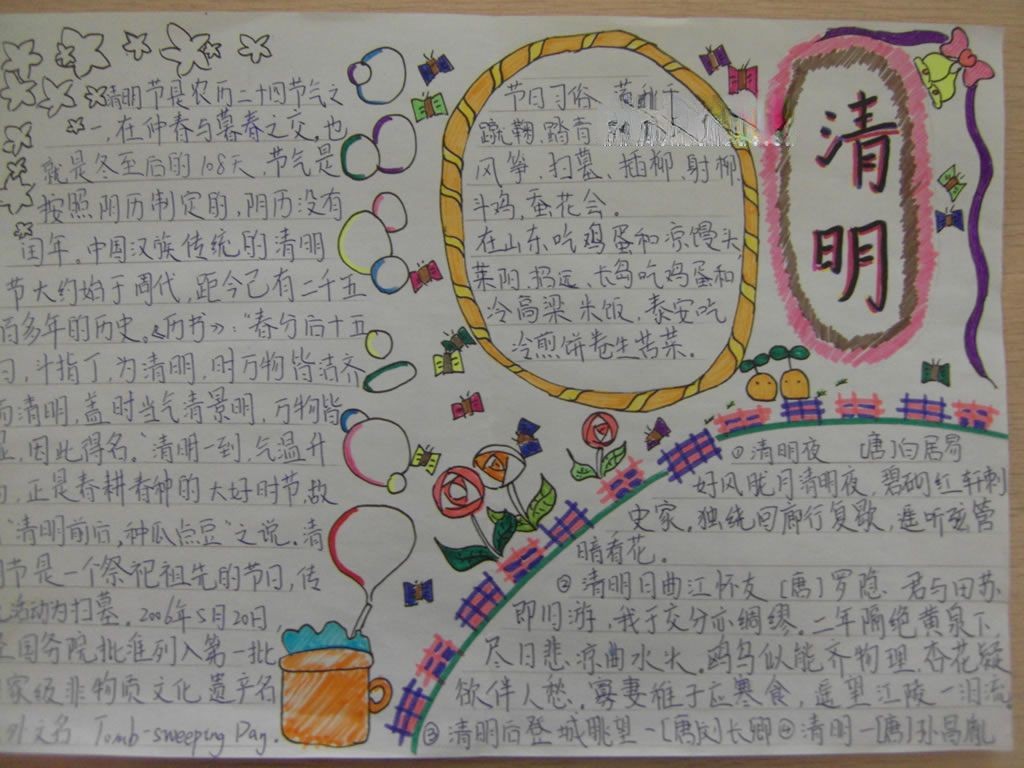 清明
清明节是农历二十四节气之
一,在仲春与暮春之交,也
就是冬至后的108天,节气是
按照阴历制定的,阴历没有
闰年。中国汉族传统的清明
节大约始于周代,距今已有二千五
百多年的历史。《历书》:"春分后十五
日,斗指丁,为清明,时万物皆洁齐
而清明,盖时当气清景明,万物皆
显,因此得名。"清明一到,气温升
高,正是春耕春种的大好时节,故
"清明前后,种瓜点豆"之说。清
明节是一个祭祀祖先的节日,传
活动为扫墓。2006年5月20日
国务院批准列入第一批
家级非物质文化遗产名
外文名 Tomb-sweeping Day.
节日习俗
蹴鞠、踏青
风筝、扫墓、插柳、射柳
斗鸡、蚕花会。
在山东,吃鸡蛋和凉馒头,
莱阳、招远、长岛吃鸡蛋和
冷高粱米饭,泰安吃
冷煎饼卷生苦菜。
①清明夜 唐)白居易
好风胧月清明夜,碧砌红轩刺
史家。独绕回廊行复歇,遥听弦管
暗看花。
②清明日曲江怀友 [唐]罗隐 君与田苏
即旧游,我于交分亦绸缪。二年隔绝黄泉下,
尽日悲凉曲水头。鸥鸟似能齐物理,杏花疑
欲伴人愁。寡妻稚子应寒食,遥望江陵一泪流
③清明后登城眺望-[唐]刘长卿④清明-[唐]孙昌胤